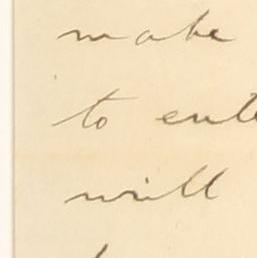 make
to ente
will